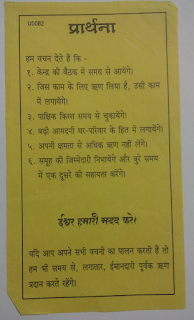 U0082
प्रार्थना
हम वचन देते हैं कि -
१. केन्द्र की बैठक में समय से आयेंगे।
२. जिस काम के लिए ऋण लिया है, उसी काम
में लगायेंगे।
३. पाक्षिक किस्त समय से चुकायेंगे।
४. बढ़ी आमदनी घर-परिवार के हित में लगायेंगे।
५. अपनी क्षमता से अधिक ऋण नहीं लेंगे।
६. समूह की जिम्मेदारी निभायेंगे और बुरे समय
में एक दूसरे की सहायता करेंगे।
ईश्वर हमारी मदद करे।
यदि आप अपने सभी वचनों का पालन करती हैं तो
हम भी समय से, लगातार, ईमानदारी पूर्वक ऋण
प्रदान करते रहेंगे।